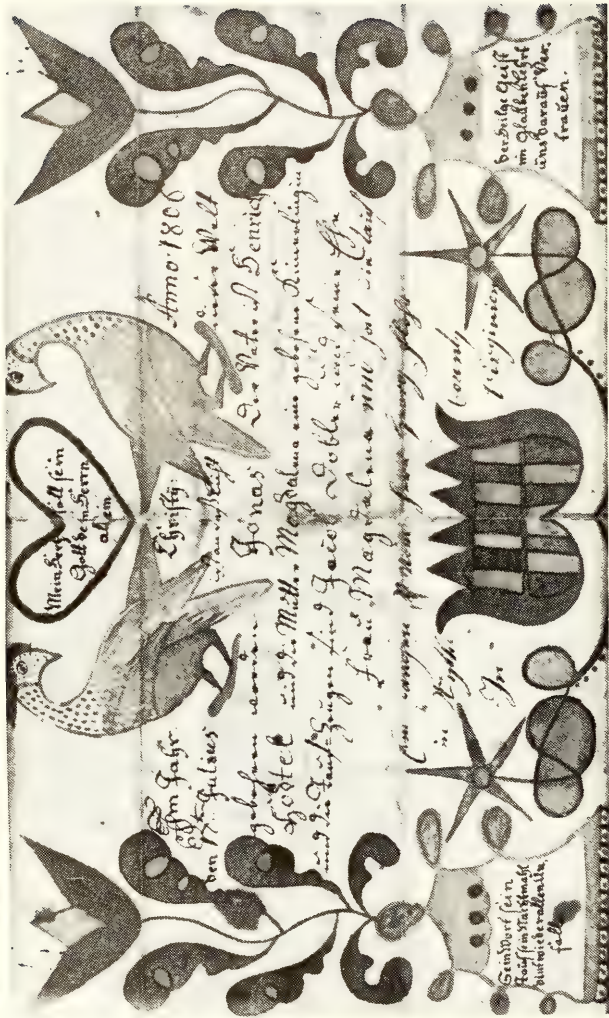 Mein Hertz soll sein
allein
Im Jahr Christy Anno 1806
den 17t Julius Welt
gebohren worren Jonas Der Vater ist Henrich
Höstel und die Mutter Magdalena eine gebohrne
und die Tauf=Zeugen sind Jacob Dobler und seine Ehe
frau Magdalena nun
County
in Wythe
In Virginien
Sein Wort sein
Tauf sein Nachtmahl
dint wieder allen Un
fall
der Heilge Geist
im glauben lehrt
uns darauf Ver
trauen.